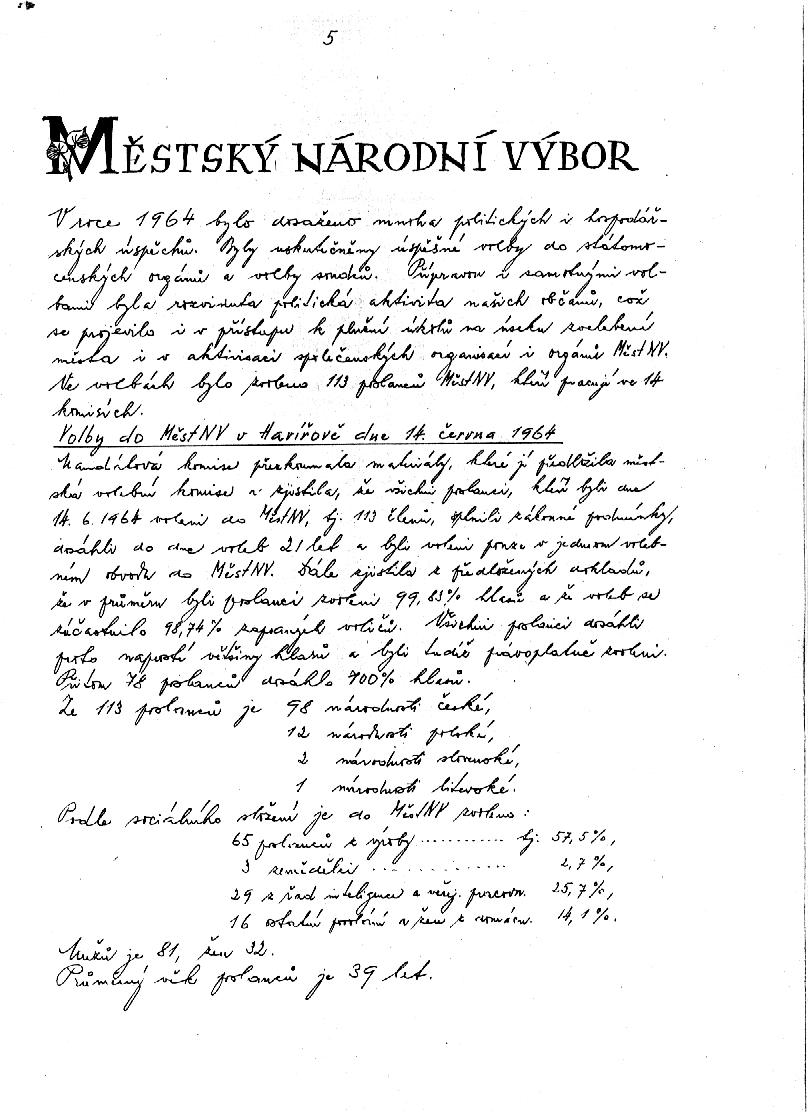 5
MĚSTSKÝ NÁRODNÍ VÝBOR
V roce 1964 bylo dosaženo mnoha politických i hospodář-
ských úspěchů. Byly uskutečněny úspěšné volby do státomo-
cenských orgánů a volby soudců. Přípravou i samotnými vol-
bami byla rozvinuta politická aktivita našich občanů, což
se projevilo i v přístupu k plnění úkolů na úseku zvelebení
města i v aktivisaci společenských organisací i orgánů MěstNV.
Ve volbách bylo zvoleno 113 poslanců MěstNV, kteří pracují ve 14
komisích.
Volby do MěstNV v Havířově dne 14. června 1964
Mandátová komise přezkoumala materiály, které jí předložila měst-
ská volební komise a zjistila, že všichni poslanci, kteří byli dne
14. 6. 1964 voleni do MěstNV, tj. 113 členů, splnili zákonné podmínky,
dosáhli do dne voleb 21 let a byli voleni pouze v jednom voleb-
ním obvodu do MěstNV. Dále zjistila z předložených dokladů,
že v průměru byli poslanci zvoleni 99,83% hlasů a že voleb se
zúčastnilo 98,74% zapsaných voličů. Všichni poslanci dosáhli
proto naprostí většiny hlasů a byli tudíž právoplatně zvoleni.
Přitom 78 poslanců dosáhlo 100% hlasů.
Ze 113 poslanců je 98 národnosti české,
12 národnosti polské,
2 národnosti slovenské,
1 národnosti litevské.
Podle sociálního složení je do MěstNV zvoleno:
65 poslanců z výroby ........... tj. 57,5%,
3 zemědělci .............. 2,7%,
29 z řad inteligence a veřej. pracovn. 25,7%,
16 ostatní povolání a žen z domácn. 14,1%.
Mužů je 81, žen 32.
Průměrný věk poslanců je 39 let.